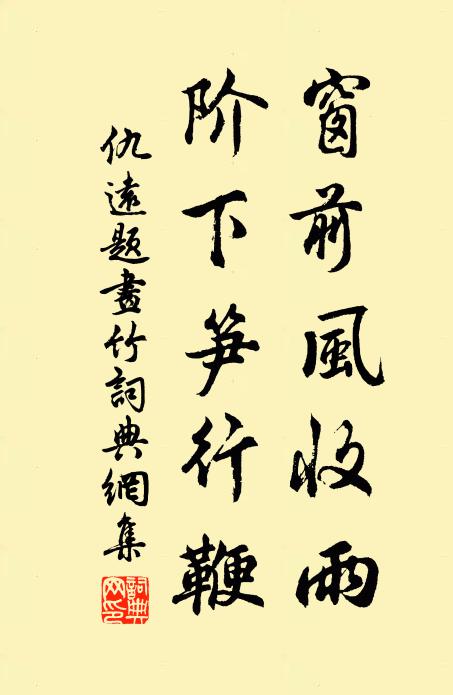 窗前風收雨
阶下笋行鞭
仇遠題畫竹詞典網集
詞典网印